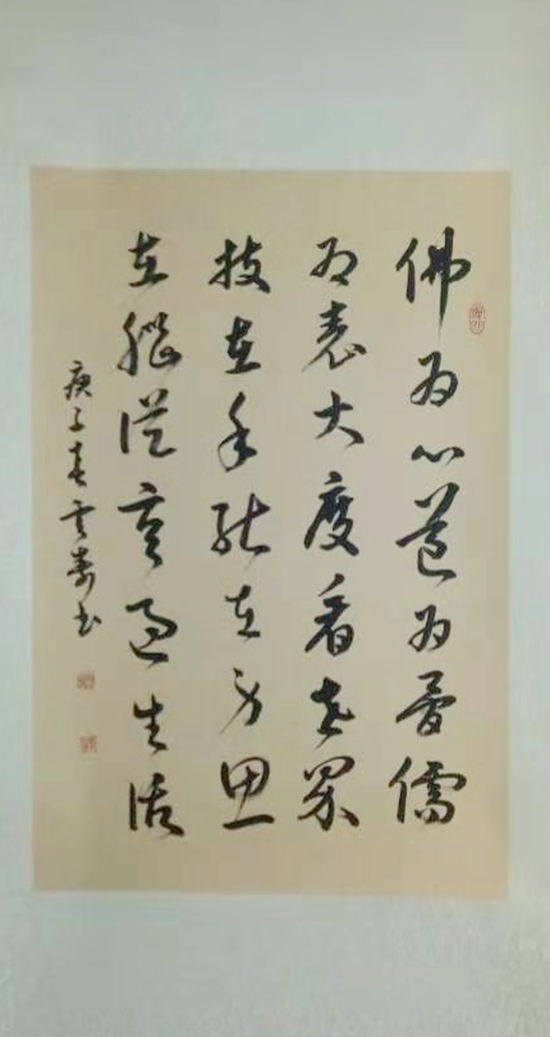 佛为心道为骨儒
为表大度看世界
技在手能在身思
在脑从容过生活
庚子春云寿书